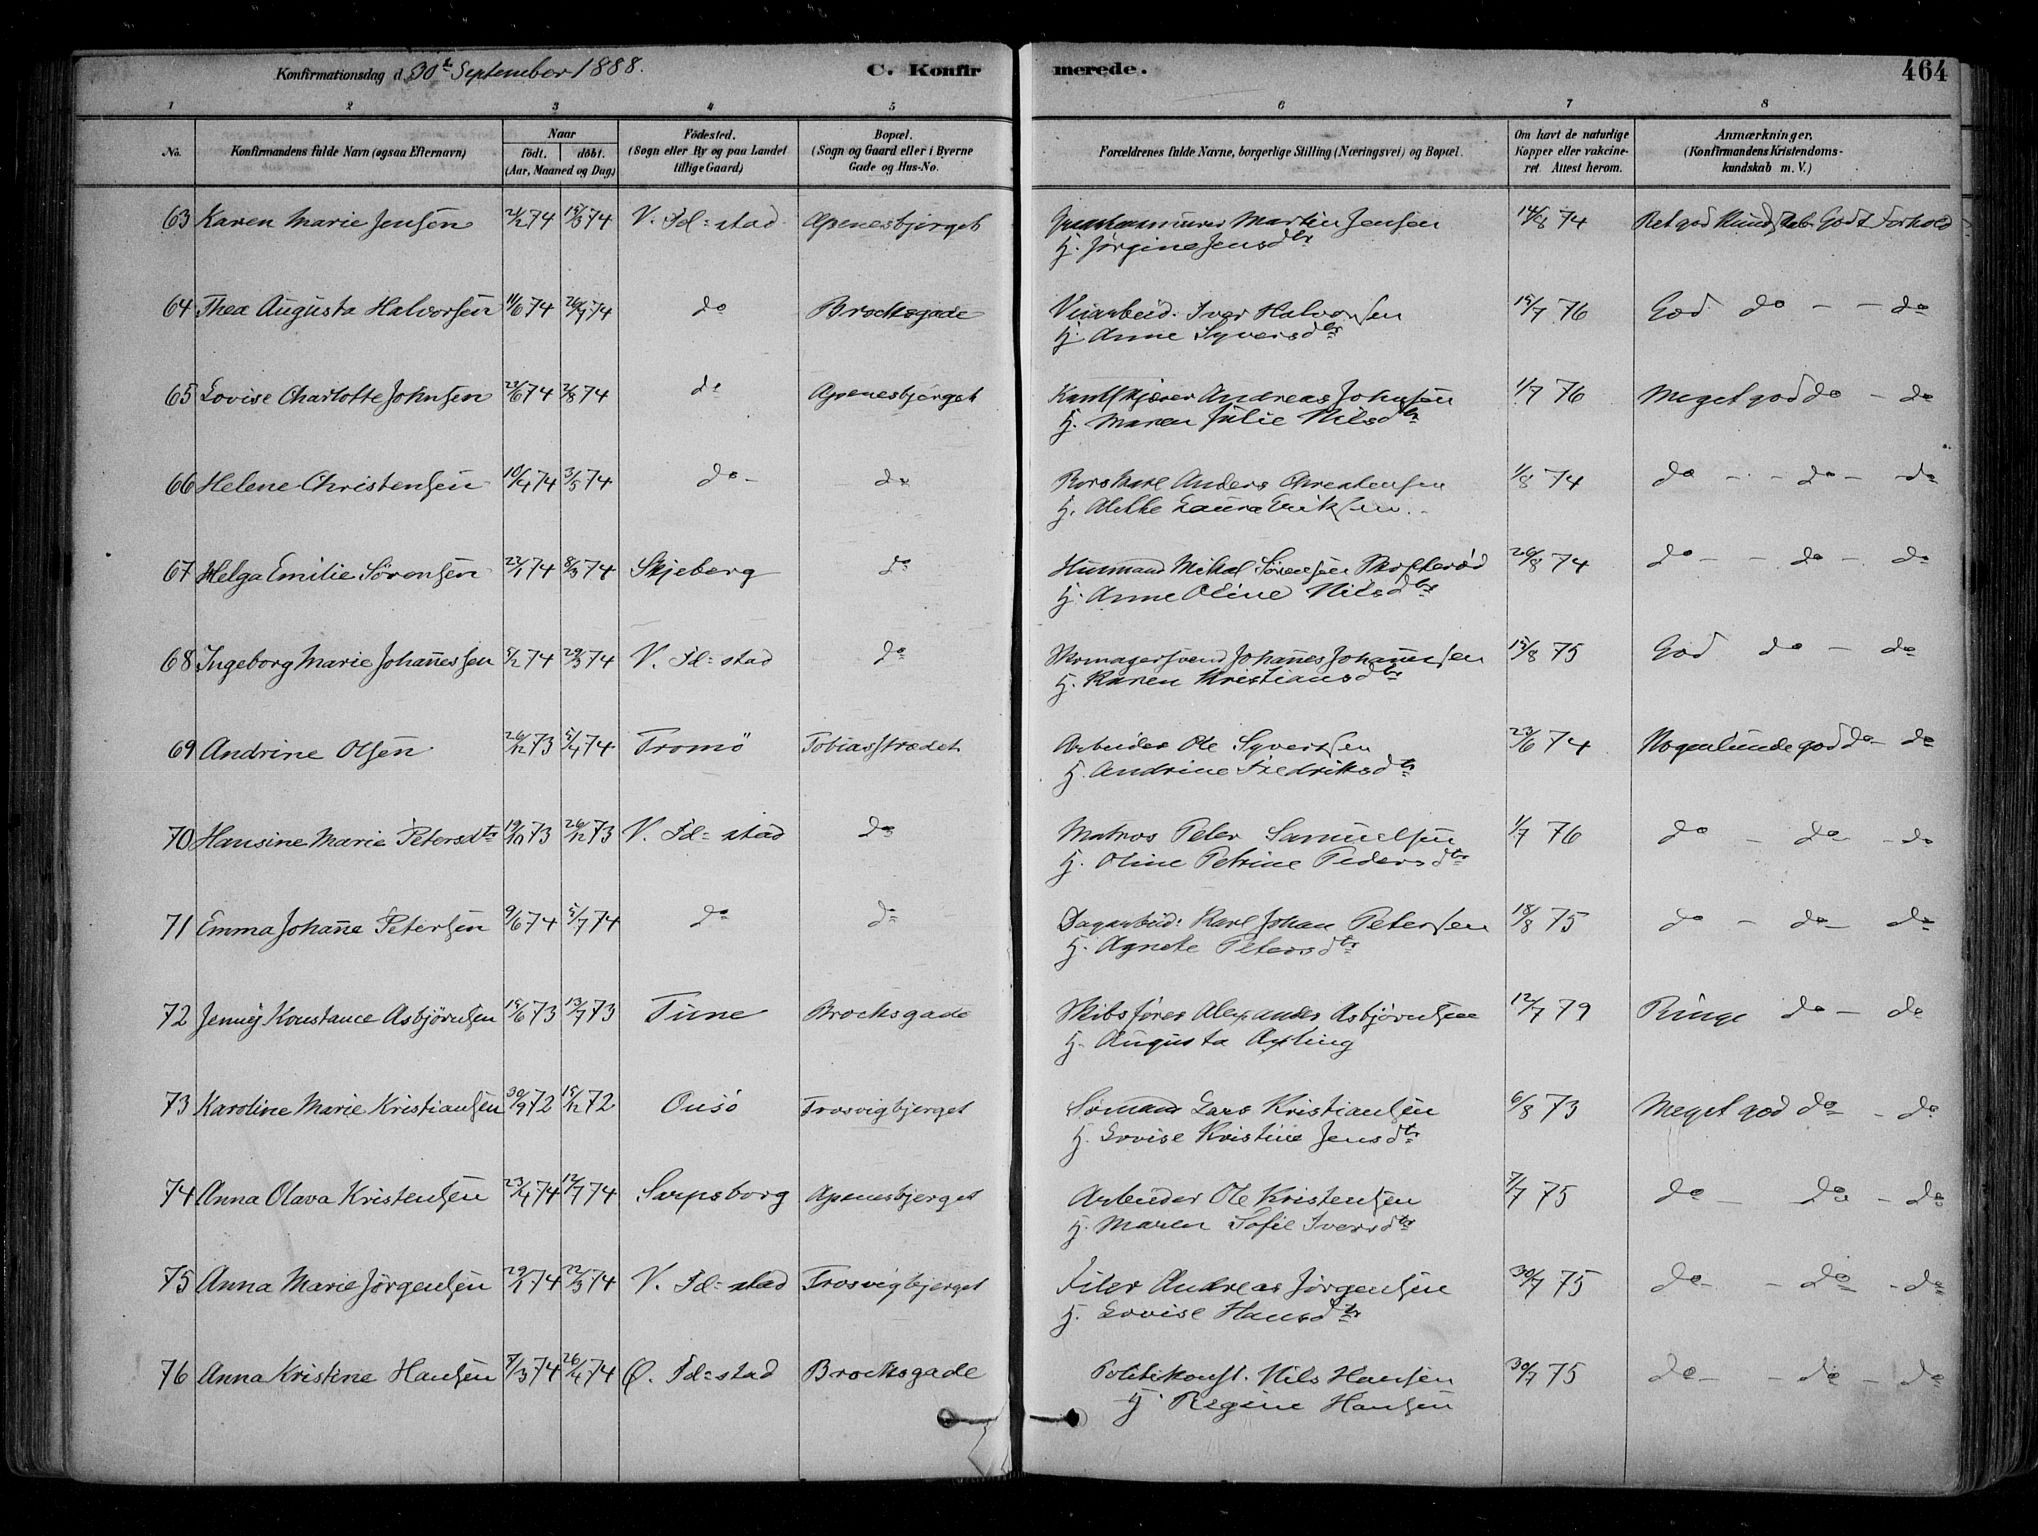 Konfirmationsdag d. 30t September 1888. C. Konfirmerede. 464
1 2 3 4 5 6 7 8
No. Konfirmandens fulde Navn (ogsaa Efternavn) Naar født. døbt. (Aar, Maaned og Dag) Fødested. (Sogn eller By og paa Landet tillige Gaard) Bopæl. (Sogn og Gaard eller i Byerne Gade og Hus-No. Forældrenes fulde Navne, borgerlige Stilling (Næringsvei) og Bopæl. Om havt de naturlige Kopper eller vakcineret. Attest herom. Anmærkninger. (Konfirmandens Kristendomskundskab m. V.)
63 Karen Marie Jensen 21/2 74 15/3 74 V. Fd=stad Apenesbjerget Martin Jensen 14/8 74 Ret god Kundskab Godt Forhold
H. Jørgine Jensdtr
64 Thea Augusta Halvorsen 11/6 74 26/7 74 do Brocksgade Veiarbeid. Iver Halvorsen 15/7 76 God do - - do
H. Anne Syversdtr
65 Lovise Charlotte Johnsen 22/6 74 2/8 74 do Apenesbjerget Andreas Johnsen 1/7 76 Meget god do - do
H. Maren Julie Nilsdtr
66 Helene Christensen 10/4 74 3/5 74 do - do Anders Christensen 1/8 74 do - - do - - do
H. Laura Eriksen
67 Helga Emilie Sørensen 22/1 74 8/3 74 Skjeberg do Husmand Mikal Sørensen 26/8 74 do - - do - do
H. Anne Oline Nilsdtr
68 Ingeborg Marie Johannessen 5/2 74 29/3 74 V. Fd=stad do Skomagersvend Johanes Johannesen 15/8 75 God do - do
H. Karen Kristiansdtr
69 Andrine Olsen 26/12 73 5/4 74 Tromö Tobiasstrædet Arbeider Ole Syvertsen 23/6 74 Nogenlunde god do - do
H. Andrine Fredriksdtr
70 Hansine Marie Petersdtr 19/10 73 26/12 73 V. Fd=stad do Matros Peter Samuelsen 1/7 76 do - do - do
H. Oline Petrine Pedersdtr
71 Emma Johanne Petersen 9/6 74 5/7 74 do do Dagarbeid. Karl Johan Petersen 18/8 75 do - do - do
H. Agnete Petersdtr
72 Jenny Konstance Asbjørnsen 15/6 73 13/7 73 Tune Brocksgade Skibsfører Alexander Asbjørnsen 12/7 79 Ringe do - do
H. Augusta
73 Karoline Marie Kristiansen 30/9 72 15/12 72 Onsö Trosvigbjerget Sömand Lars Kristiansen 6/8 73 Meget god do - do
H. Lovise Kristine Jensdtr
74 Anna Olava Kristensen 23/4 74 12/7 74 Sarpsborg Apenesbjerget Arbeider Ole Kristensen 7/7 75 do - do - do
H. Maren Sofie Iversdtr
75 Anna Marie Jørgensen 29/1 74 22/3 74 V. Fd=stad Trosvigbjerget Filer Andreas Jørgensen 30/7 75 do - - do - do
H. Lovise Hansdtr
76 Anna Kristine Hansen 8/3 74 26/4 74 Ø. Fd=stad Brocksgade Politikonst. Nils Hansen 30/7 75 do - - do - do
H. Regine Hansen